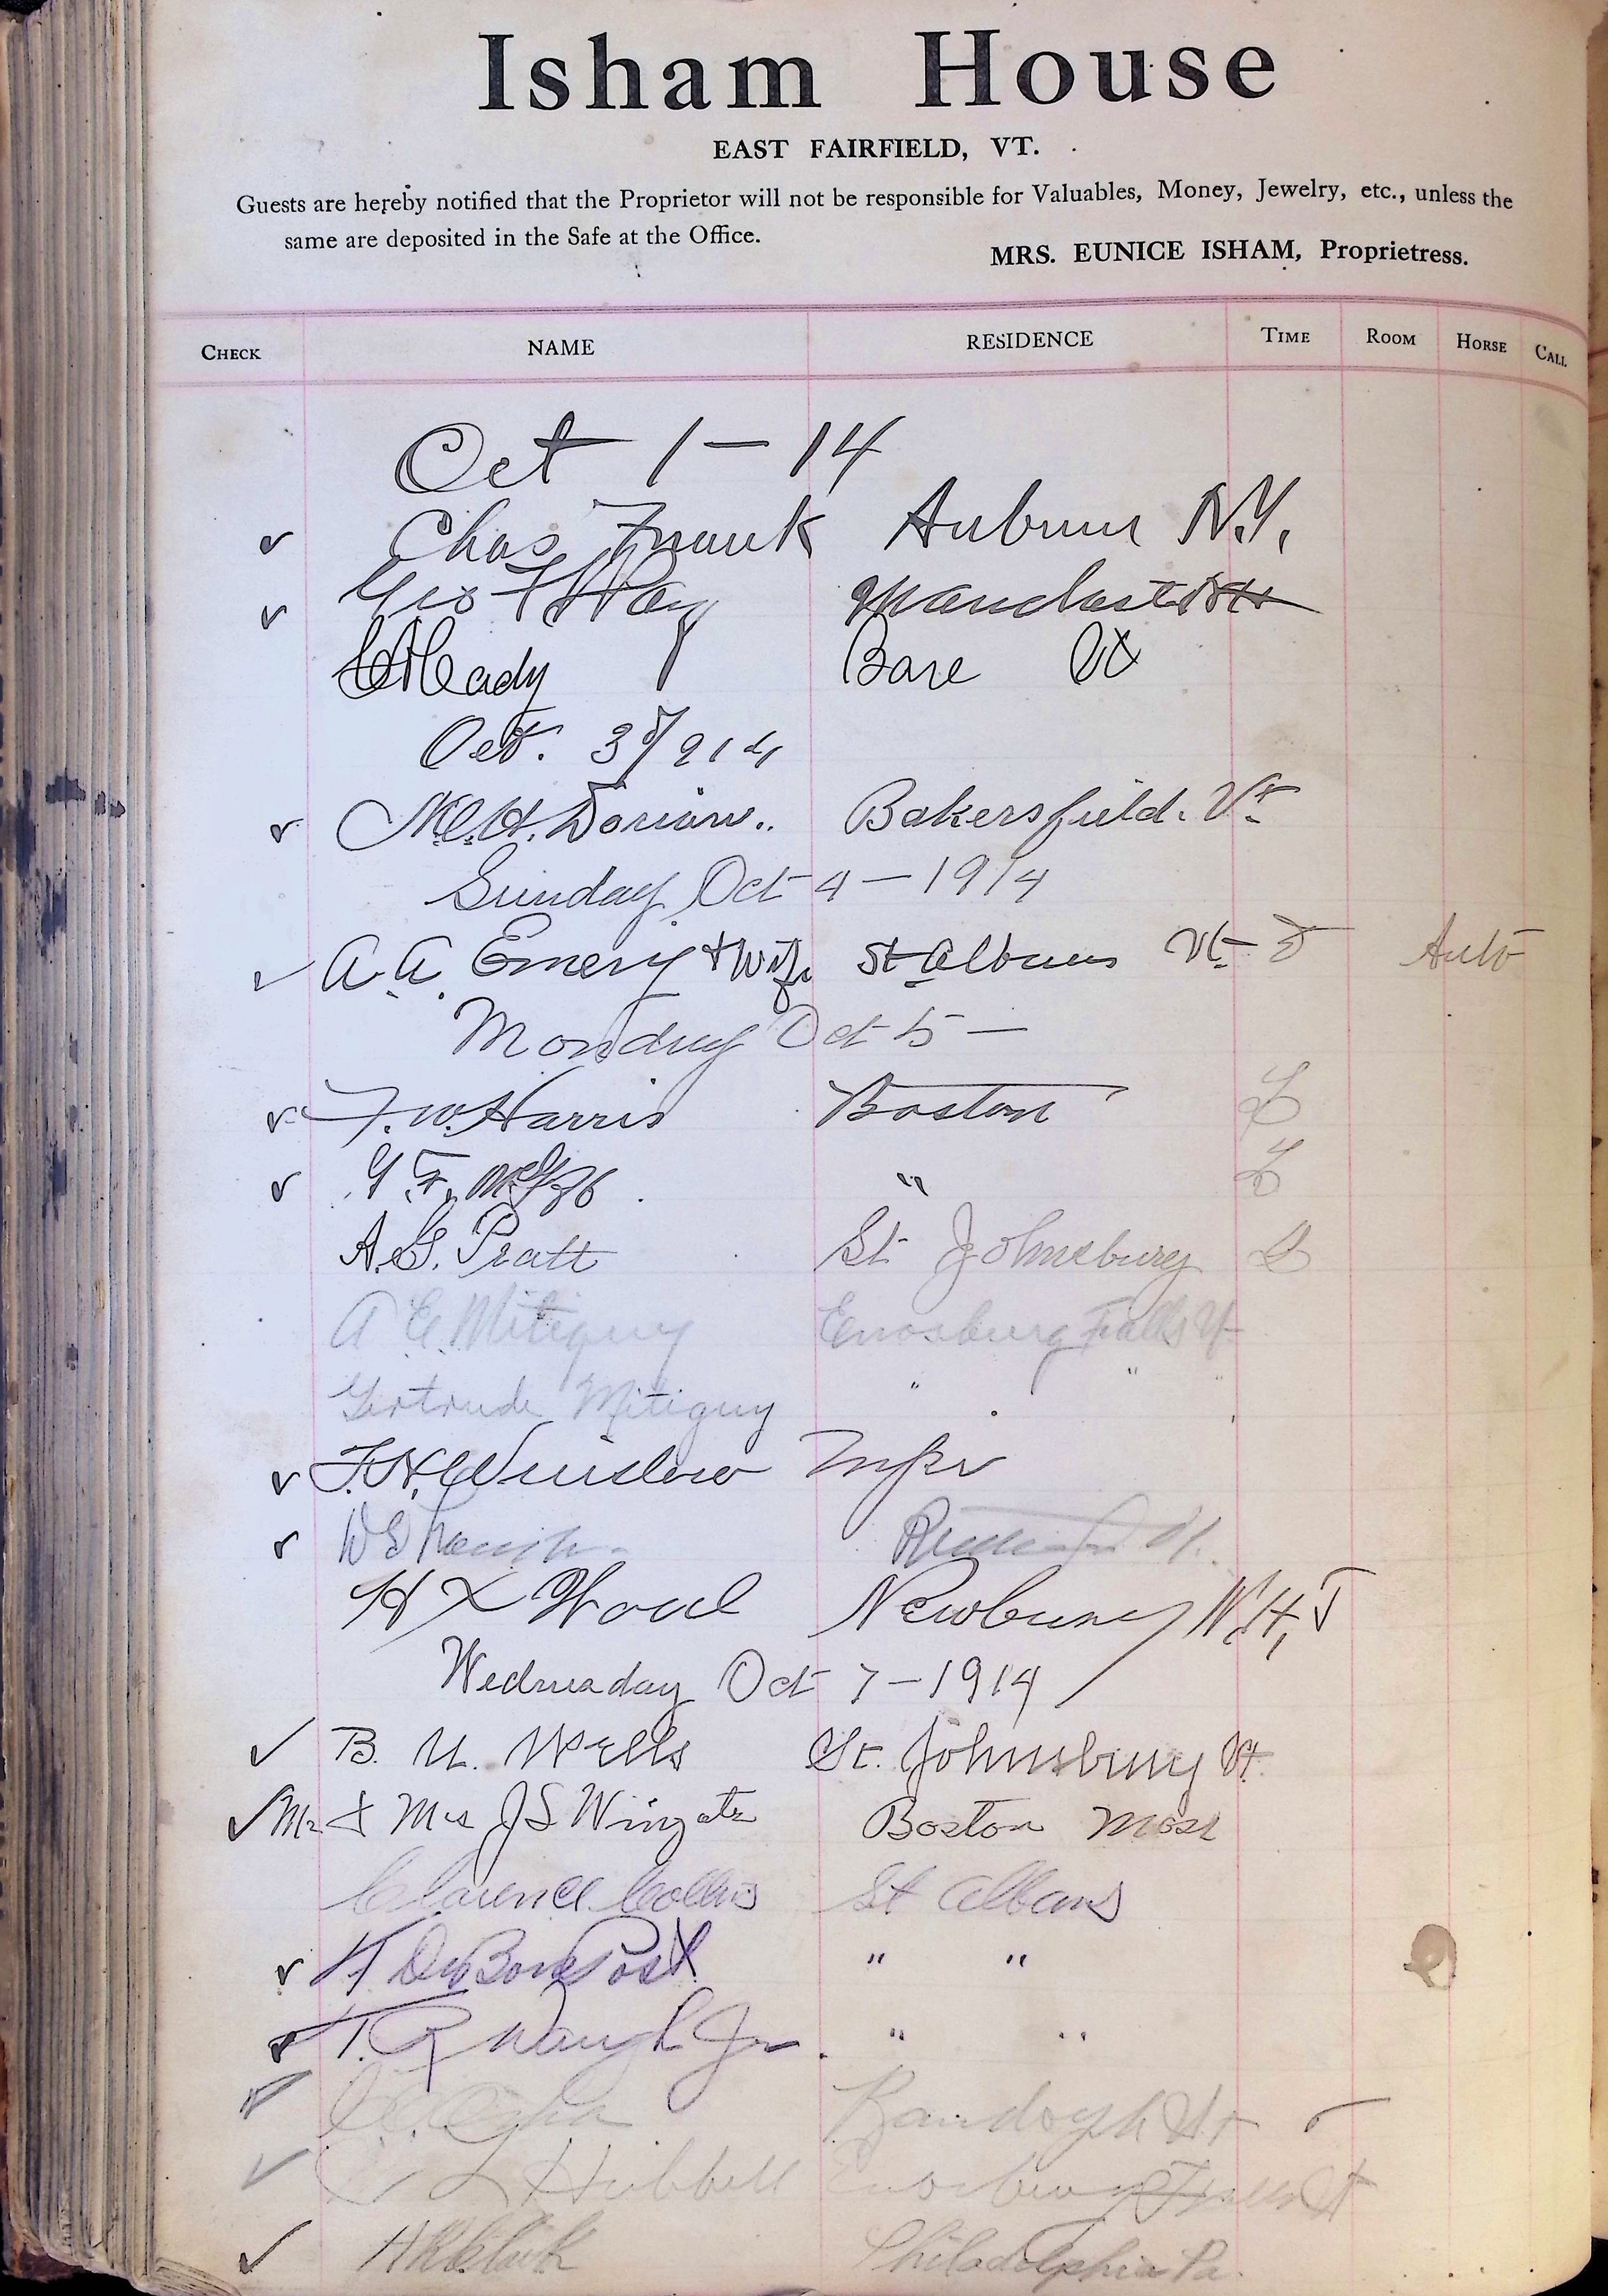 Isham House
EAST FAIRFIELD, VT.
Guests are hereby notified that the Proprietor will not be responsible for Valuables, Money, Jewelry, etc., unless the
same are deposited in the Safe at the Office.
MRS. EUNICE ISHAM, Proprietress.
CHECK NAME RESIDENCE TIME ROOM HORSE CALL
Oct 1 - 14
Chas Frank Auburn N.Y.
Geo Manchester
Cady Bare Vt
Oct. 3 / 914
Bakersfield. Vt
Sunday Oct 4 - 1914
A. A. Emery & Wife St Albans Vt Auto
Monday Oct 5 -
F. W. Harris Boston
G. F. "
A. G. Pratt St Johnsbury
A E Mitiguy Enosburg Falls Vt
Gertrude Mitiguy " " "
F. H. Winslow
W E
H Wood Newbury N.H,
Wednesday Oct 7 - 1914
B. U. Wells St. Johnsbury Vt.
Mr & Mrs J S Wingate Boston Mass
Clarence Collins St Albans
Post " "
Waugh Jr. " "
Randolph Vt
L Hubbell Enosburg Falls Vt
H R Clark Philadelphia Pa.